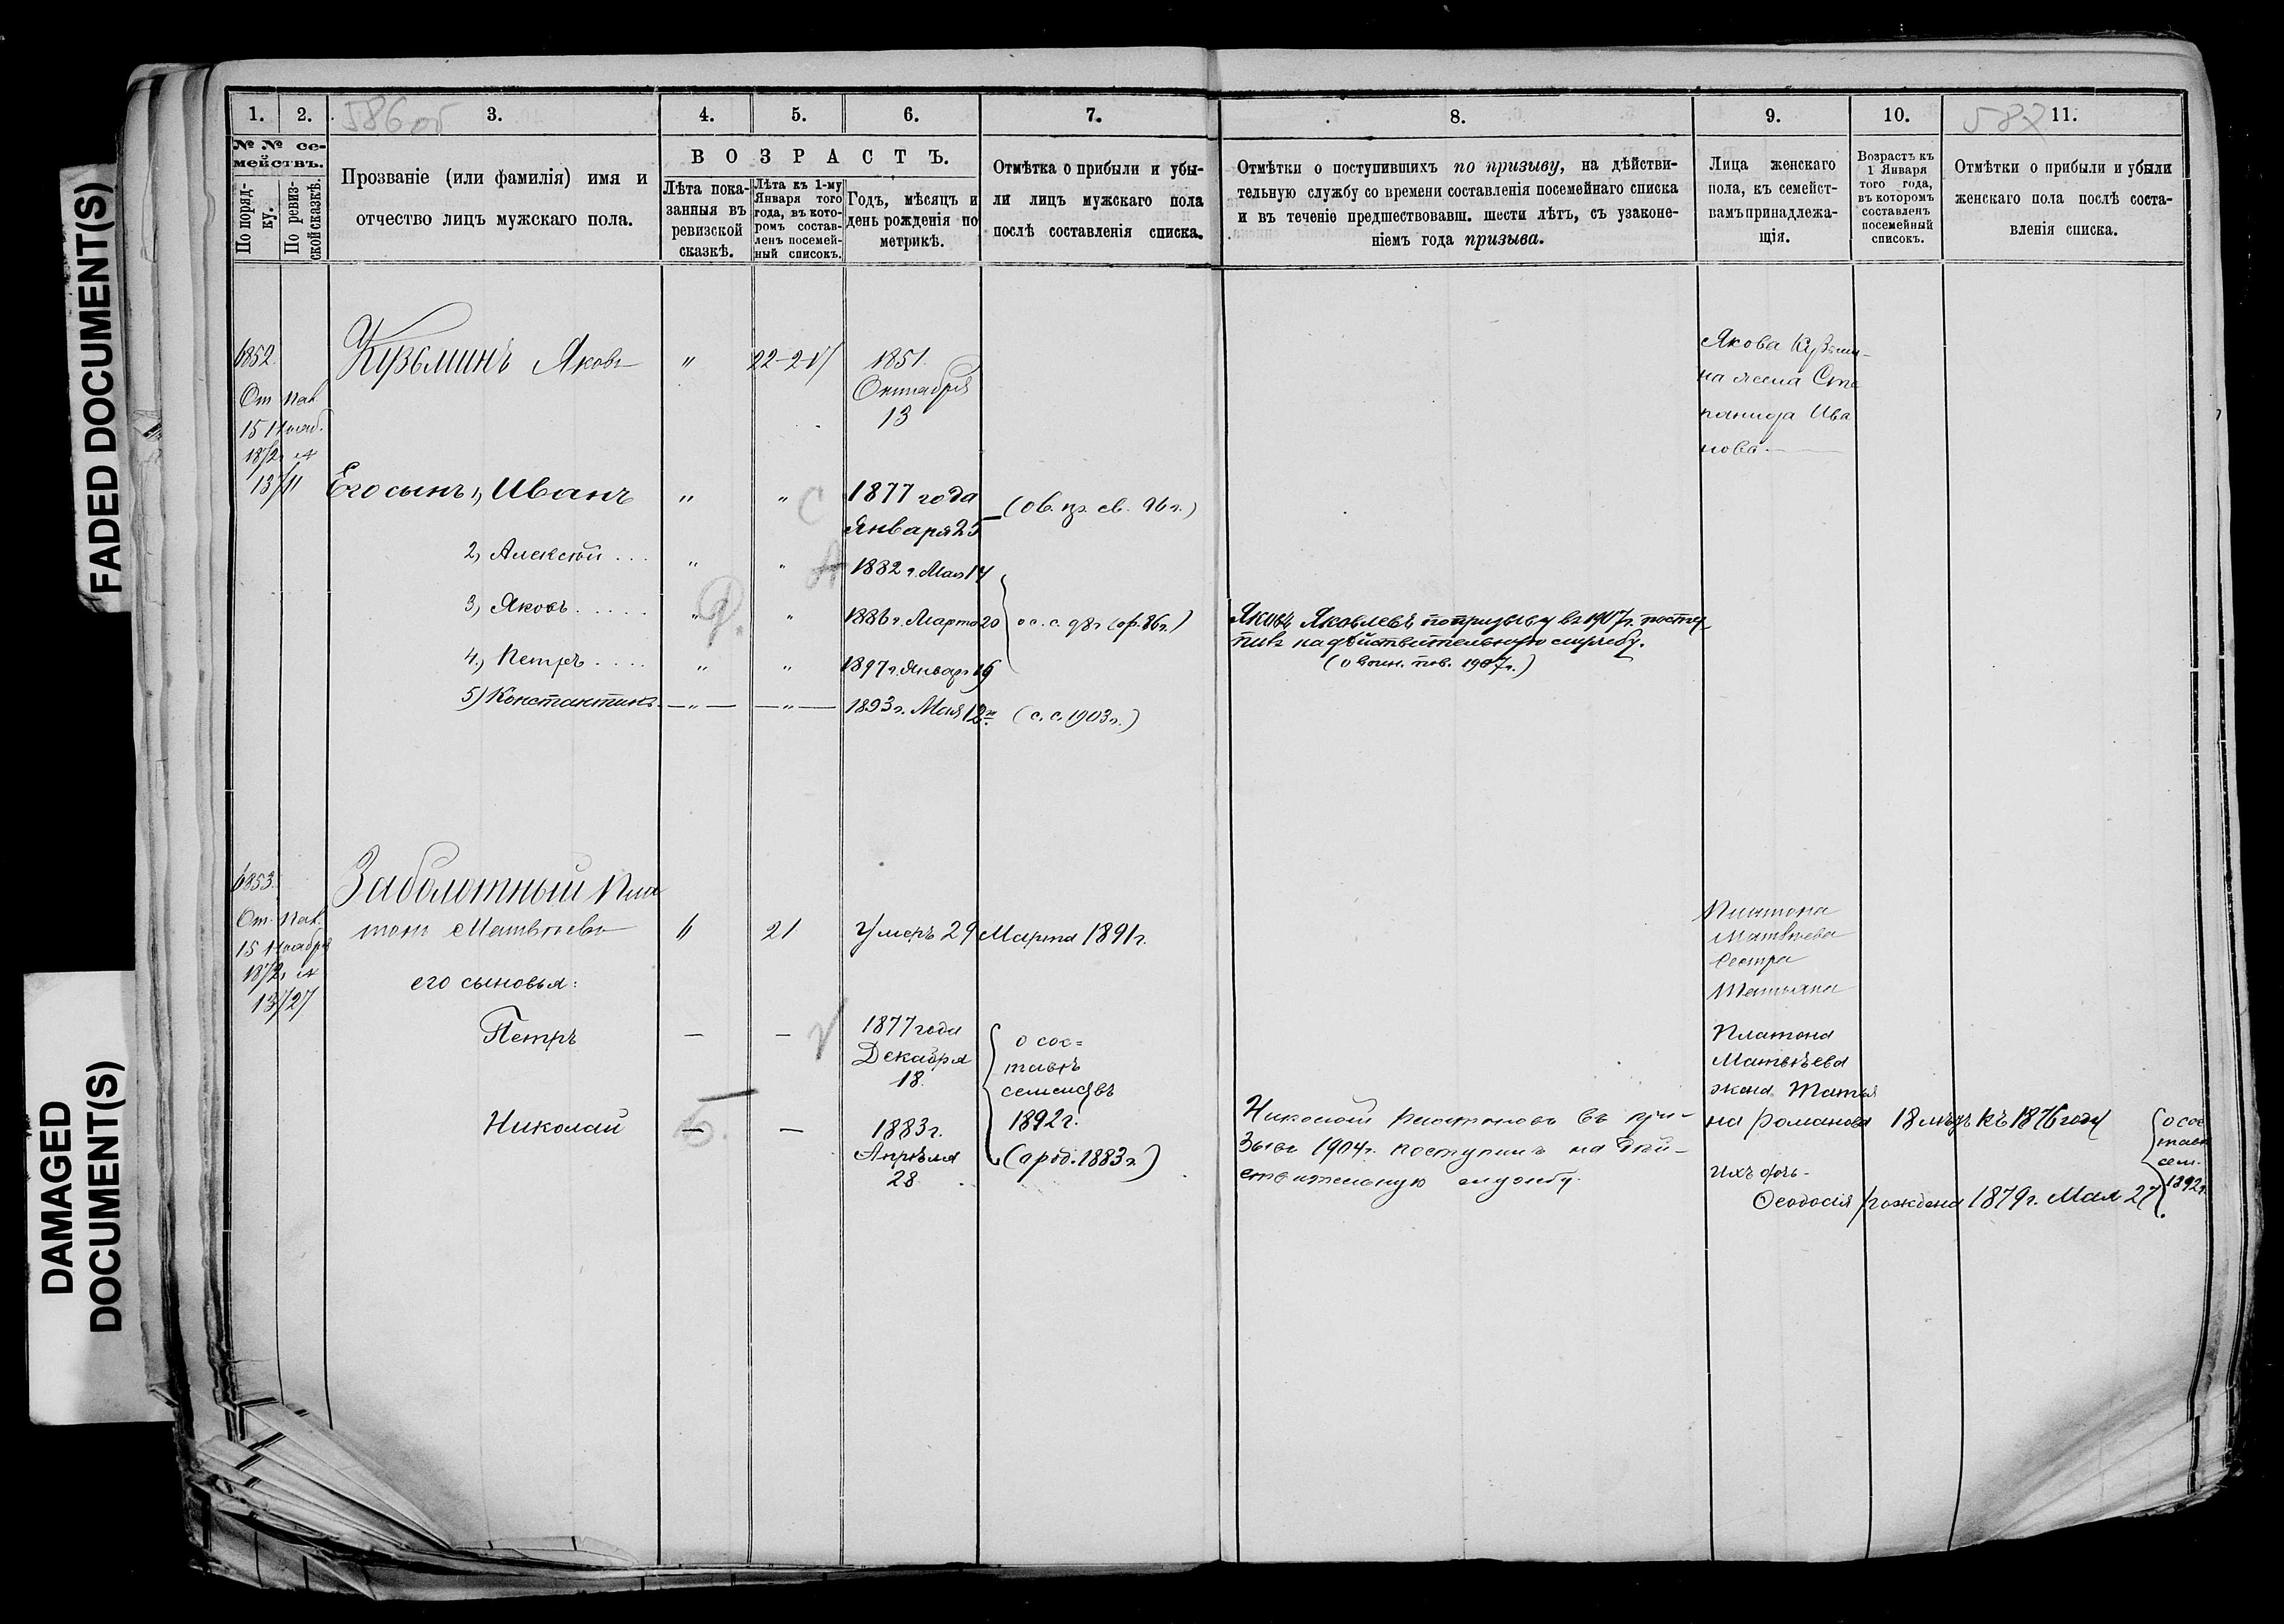 FADED DOCUMENT(S)
DAMAGED
DOCUMENT(S)
1.
2.
586 об
3.
4.
5.
6.
7.
8.
9.
10.
587
11.
№ № се-
мействъ.
По поряд-
ку.
По ревиз-
ской сказкѣ.
Прозваніе (или фамилія) имя и
отчество лицъ мужскаго пола.
ВОЗРАСТЪ.
Лѣта пока-
занныя въ
ревизской
сказкѣ.
Лѣта къ 1-му
Января того
года, въ кото-
ромъ состав-
ленъ посемей-
ный списокъ.
Годъ, мѣсяцъ и
день рожденія по
метрикѣ.
Отмѣтка о прибыли и убы-
ли лицъ мужскаго пола
послѣ составленія списка.
Отмѣтки о поступившихъ по призыву, на дѣйстви-
тельную службу со времени составленія посемейнаго списка
и въ теченіе предшествовавш. шести лѣтъ, съ узаконе-
ніемъ года призыва.
Лица женскаго
пола, къ семейст-
вамъ принадлежа-
щія.
Возрастъ къ
1 Января
того года,
въ которомъ
составленъ
посемейный
списокъ.
Отмѣтки о прибыли и убыли
женскаго пола послѣ соста-
вленія списка.
6852.
Кузьминъ Яковъ
"
22-21
1851.
Октября
13
Якова Кузьми-
на жена Сте
панида Ива
нова
От. пак.
15 Нояб.
1872 №
137/11
Его сынъ 1, Иванъ
"
"
С
1877 года
Января 25
(об. пр. св. 96 г.)
2, Алексѣй . . .
"
"
1882 г. Мая 14
3, Яковъ . . . . .
"
"
1886 г. Марта 20
о с. с. 98 г. (ар. 86 г.)
Яковъ Яковлевъ по призыву въ 1907 г. посту-
пилъ на дѣйствительную службу.
(о воин. пов. 1907 г.)
4, Петръ . . . .
"
"
1897 г. Январ 19
5) Константинъ
"
"
1893 г. Мая 12го
(с. с. 1903 г.)
6853.
Заболотный Пла
тонъ Матвѣевъ
"
21
Умеръ 29 Марта 1891 г.
Платона
Матвѣева
Сестра
Татьяна
От. пак.
15 Ноября
1872 №
137/27
его сыновья:
Петръ
1877 года
Декабря
18.
о сос=
тавѣ
семейсвъ
1892 г.
(ар об. 1883 г.)
Платона
Матвѣева
жена Татья
на Романова
18 лѣтъ къ 1876 году
о сос
тавѣ
сем.
1892 г.
Николай
1883 г.
Апрѣля
28
Николай Платоновъ въ при-
зывъ 1904 г. поступилъ на дѣй-
ствительную службу.
ихъ дочь-
Ѳеодосія рождена 1879 г. Мая 27